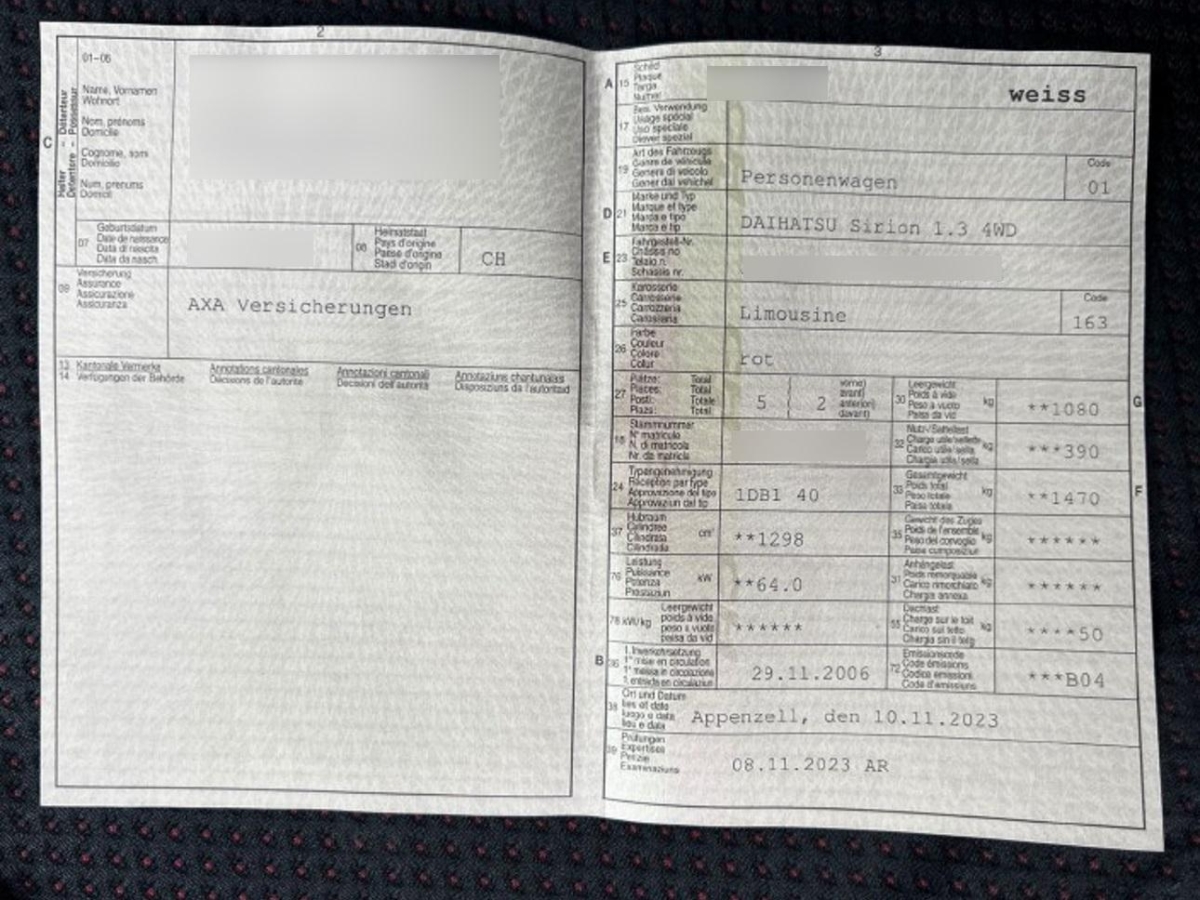 2
01-06
Halter - Détenteur
Detentore - Possessur
C
Name, Vornamen
Wohnort
Nom, prénoms
Domicile
Cognome, nomi
Domicilio
Num, prenums
Domicil
07
Geburtsdatum
Date de naissance
Data di nascita
Data da nasch.
08
Heimatstaat
Pays d'origine
Paese d'origine
Stadi d'origin
CH
09
Versicherung
Assurance
Assicurazione
Assicuranza
AXA Versicherungen
13 Kantonale Vermerke
14 Verfügungen der Behörde
Annotations cantonales
Décisions de l'autorité
Annotazioni cantonali
Decisioni dell'autorità
Annotaziuns chantunalas
Disposiziuns da l'autoritad
3
A 15
Schild
Plaque
Targa
Numer
weiss
17
Bes. Verwendung
Usage spécial
Uso speciale
Diever spezial
19
Art des Fahrzeugs
Genre de véhicule
Genere di veicolo
Gener dal vehichel
Personenwagen
Code
01
D 21
Marke und Typ
Marque et type
Marca e tipo
Marca e tip
DAIHATSU Sirion 1.3 4WD
E 23
Fahrgestell-Nr.
Châssis no
Telaio n.
Schassis nr.
25
Karosserie
Carrosserie
Carrozzeria
Carossaria
Limousine
Code
163
26
Farbe
Couleur
Colore
Colur
rot
27
Plätze: Total
Places: Total
Posti: Totale
Plazs: Total
5 ( 2
vorne)
avant)
anteriori)
davant)
30
Leergewicht
Poids à vide
Peso a vuoto
Paisa da vid
kg
**1080
G
18
Stammnummer
N° matricule
N. di matricola
Nr. da matricla
32
Nutz-/Sattellast
Charge utile/sellette
Carico utile/sella
Chargia utila/sella
kg
***390
24
Typengenehmigung
Réception par type
Approvazione del tipo
Approvaziun dal tip
1DB1 40
33
Gesamtgewicht
Poids total
Peso totale
Paisa totala
kg
**1470
F
37
Hubraum
Cylindrée
Cilindrata
Cilindrada
cm³
**1298
35
Gewicht des Zuges
Poids de l'ensemble
Peso del convoglio
Paisa cumposiziun
kg
******
76
Leistung
Puissance
Potenza
Prestaziun
kW
**64.0
31
Anhängelast
Poids remorquable
Carico rimorchiato
Chargia annexa
kg
******
78 kW/kg
Leergewicht
poids à vide
peso a vuoto
paisa da vid
******
55
Dachlast
Charge sur le toit
Carico sul tetto
Chargia sin il tetg
kg
****50
B 36
1. Inverkehrsetzung
1re mise en circulation
1a messa in circolazione
1. entrada en circulaziun
29.11.2006
72
Emissionscode
Code émissions
Codice emissioni
Code d'emissiuns
***B04
38
Ort und Datum
lieu et date
luogo e data
lieu e data
Appenzell, den 10.11.2023
39
Prüfungen
Expertises
Perizie
Examinaziuns
08.11.2023 AR